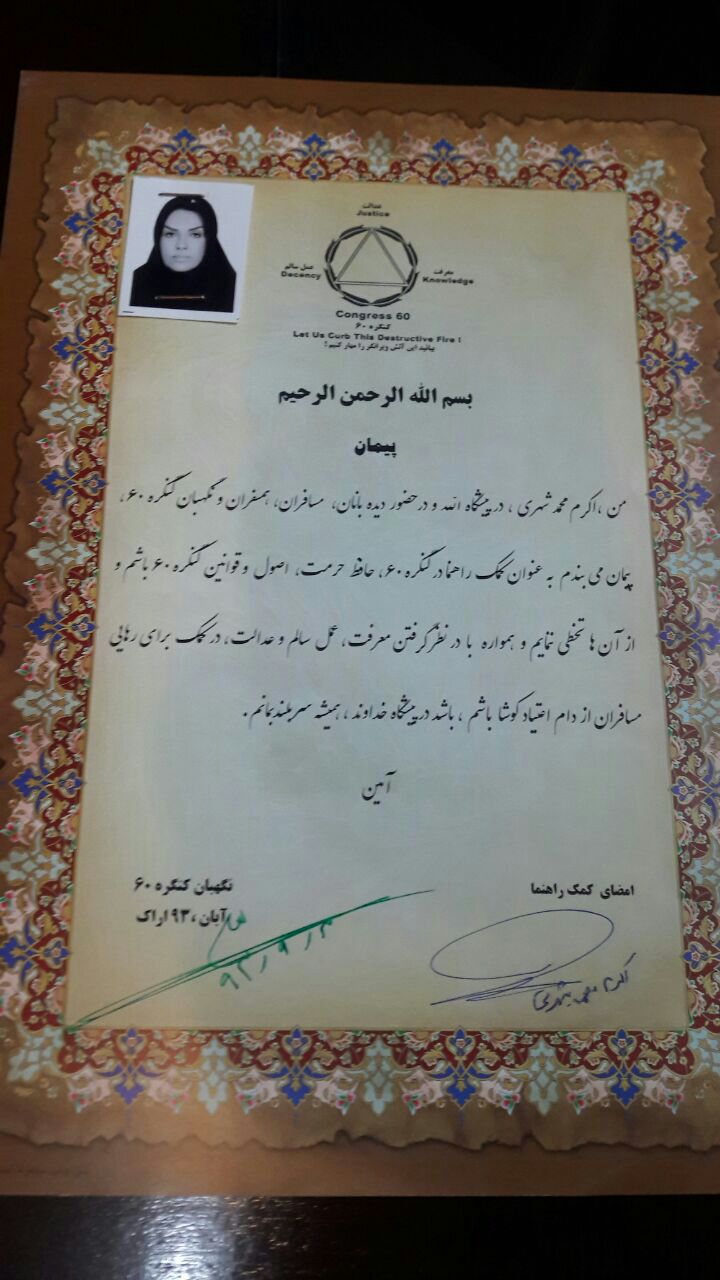 عدالت
Justice
عمل سالم
Decency
معرفت
Knowledge
Congress 60
کنگره ۶۰
Let Us Curb This Destructive Fire !
بیائید این آتش ویرانگر را مهار کنیم !
بسم الله الرحمن الرحیم
پیمان
من ، اکرم محمد شهری ، در پیشگاه الله و در حضور دیده بانان، مسافران، همسفران و نگهبان کنگره ۶۰،
پیمان می بندم به عنوان کمک راهنما در کنگره ۶۰، حافظ حرمت، اصول و قوانین کنگره ۶۰ باشم و
از آن ها تخطی ننمایم و همواره با در نظر گرفتن معرفت، عمل سالم و عدالت، در کمک برای رهایی
مسافران از دام اعتیاد کوشا باشم ، باشد در پیشگاه خداوند ، همیشه سربلند بمانم.
آمین
امضای کمک راهنما
نگهبان کنگره ۶۰
آبان ،۹۳ اراک
اکرم محمد شهری
۹۳٫۹٫۳